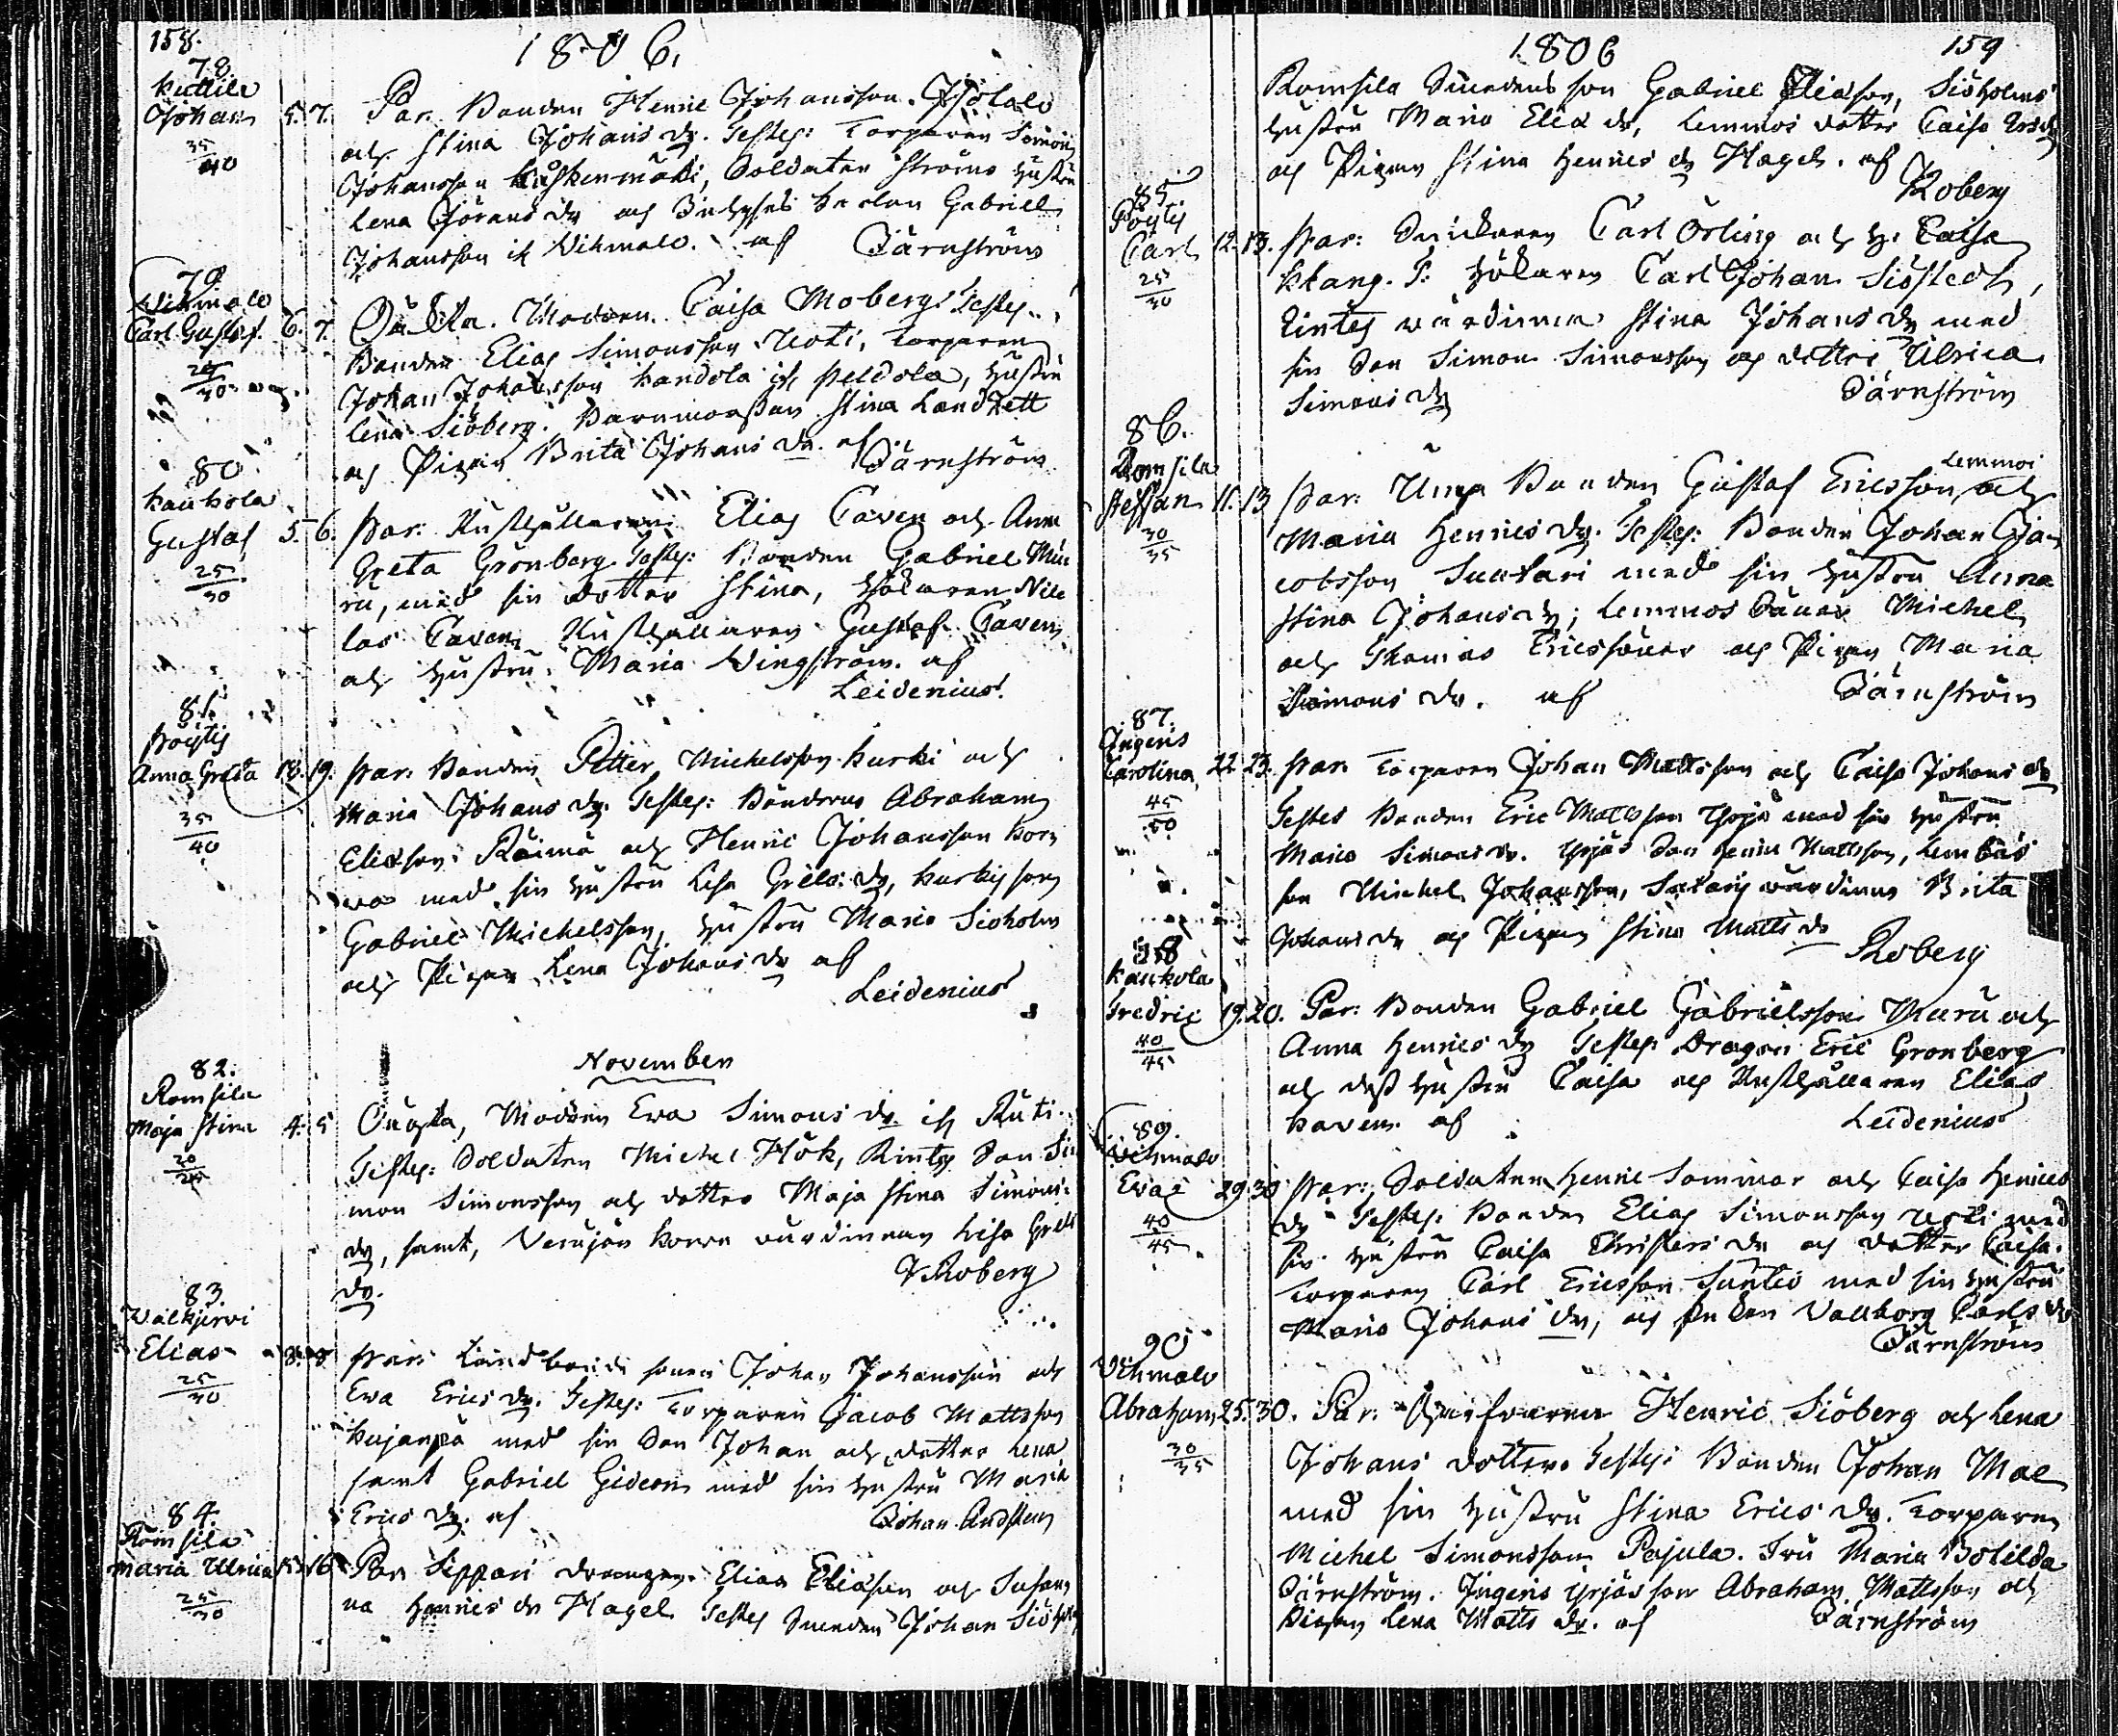 158.
1806.
78
Kuttila
Johan 5. 7. Par. Bonden Henric Johansson Isotalo
35
40
och Stina Johans dr. Testes: Torparen Simon
Johansson Koskenmäki, Soldaten Ströms hustru
Lena Görans dr och
Gabriel
Johansson ifr Vihmalo. af Tärnström
79
Vihmalo
Carl Gustaf. 6. 7. Oäkta. Modren Caisa Moberg. Testes:
Bonden Elias Simonsson Uoti, Torparen
Johan Johansson Handola ifr Peldola, hustru
Lena Siöberg. Barnmorskan Stina Landzett
och Pigan Brita Johans dr. af Tärnström
80
Kaukola
Gustaf 5. 6. Par: Rusthållaren Elias Caven och Anna
25
30
Greta Grönberg Testes: Bonden Gabriel Mu
ru, med sin dotter Stina,
Nic
las Caven, Rusthållaren Gustaf Caven
och hustru Maria Vingström. af
Leidenius.
81.
Pöytis
Anna Greta 18. 19. Par. Bonden Petter Michelsson Kurki och
35
40
Maria Johans dr. Testes: Bönderne Abraham
Eliasson Räimä och Henric Johansson Kor
wa med sin hustru Lisa Grels dr, Kurkis son
Gabriel Michelsson, hustru Maria Siöholm
och Pigan Lena Johans dr af
Leidenius
November
82.
Romsila
Maja Stina 4. 5 Oägta, Modren Ewa Simons dr ifr Ruti.
Testes: Soldaten Michel Hök, Rintys Son Si
mon Simonsson och dotter Maja Stina Simons
dr, samt, Verujän Korwa värdinnan Lisa Grels
dr. Roberg
83
Walkjärvi
Elias 8. 8 Par: Landbonde sonen Johan Johansson och
25
30
Ewa Erics dr. Testes: Torparen Jacob Mattsson
Kujanpä med sin Son Johan och dotter Lena
samt Gabriel Gideon med sin hustru Maria
Erics dr. af Johan Andsten
84.
Romsila
Maria Ulrica 15. 16 Par Seppäri drängen Elias Eliasson och Susan
25
30
na Henrics dr Hagel Testes Smeden Johan Siöholm
1806 159
Romsila Smedens son Gabriel Eliasson, Siöholms
hustru Maria Elias dr, Lemmos dotter Caisa
och Pigan Stina Henrics dr Hagel. af
Roberg
85
Pöytis
Carl 12. 13. Par: Snickaren Carl Örling och h. Caisa
25
30
Klang. T: Hökaren Carl Johan Siöstedt,
Rintes wärdinna Stina Johans dr med
sin Son Simon Simonsson och dotter Ulrica
Simons dr Tärnström
86.
Romsila
Staffan 11. 13 Par: Unga Bonden Gustaf Ericsson Lemmoi och
30
35
Maria Henrics dr. Testes: Bonden Johan Ja-
cobsson Suntari med sin hustru Anna
Stina Johans dr; Lemmos Söner Michel
och Thomas Ericssöner och Pigan Maria
Simons dr. af Tärnström
87.
Ingeris
Carolina 22. 23. Par Torparen Johan Mattsson och Caisa Johans dr
45
50
Testes Bonden Eric Mattsson Yrjä med sin hustru
Maria Simons dr. Yrjäs Son Henric Mattsson,
son Michel Johansson,
wärdinna Brita
Johans dr och Pigan Stina Matts dr
Roberg
88
Kaukola
Fredric 19. 20. Par: Bonden Gabriel Gabrielsson Muru och
40
45
Anna Henrics dr Testes: Dragon Eric Grönberg
och dess hustru Caisa och Rusthållaren Elias
Kaven. af Leidenius
89.
Vihmalo
Ewa 29. 30 Par: Soldaten Henric Sommar och Caisa Henrics
40
45
dr Testes: Bonden Elias Simonsson Uoti med
sin hustru Caisa Christers dr och dotter Caisa.
Torparen Carl Ericsson Suntio med sin hustru
Maria Johans dr, och Enkan Vallborg Carls dr
Tärnström
90
Vihmalo
Abraham 25. 30. Par.
Henric Siöberg och Lena
30
35
Johans dotter. Testes: Bonden Johan Mae
med sin hustru Stina Erics dr. Torparen
Michel Simonsson Pajula. Fru Maria Botilda
Tärnström. Ingeris Yrjäs son Abraham Mattsson och
Pigan Lena Matts dr. af Tärnström